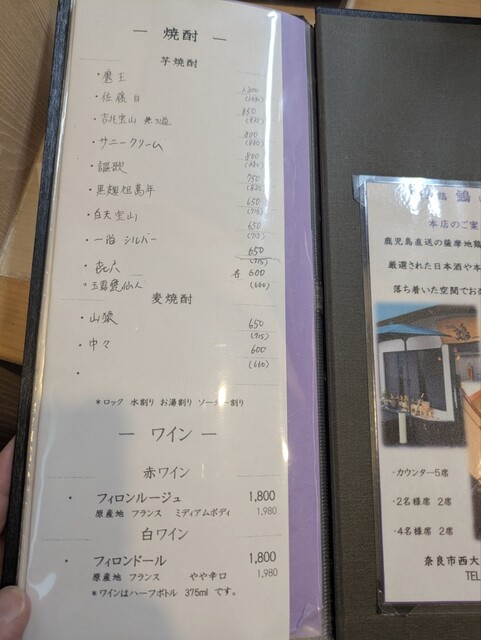 ― 焼酎 ―
芋焼酎
・魔王
・佐藤 白
・吉兆宝山
800
850
・サニークリーム
800
・謳歌
750
・黒麹旭萬年
650
(715)
・白天宝山
650
(715)
・一尚 シルバー
650
(715)
・㐂六
各 600
(660)
麦焼酎
・山猿
650
(715)
・中々
600
(660)
・
*ロック 水割り お湯割り ソーダー割り
― ワイン ―
赤ワイン
・ フィロンルージュ 1,800
原産地 フランス ミディアムボディ 1,980
白ワイン
・ フィロンドール 1,800
原産地 フランス やや辛口 1,980
*ワインはハーフボトル 375ml です。
鶴
本店のご案
鹿児島直送の薩摩地鶏
厳選された日本酒や本
落ち着いた空間でお
・カウンター5席
・2名様席 2席
・4名様席 2席
奈良市西大
TEL